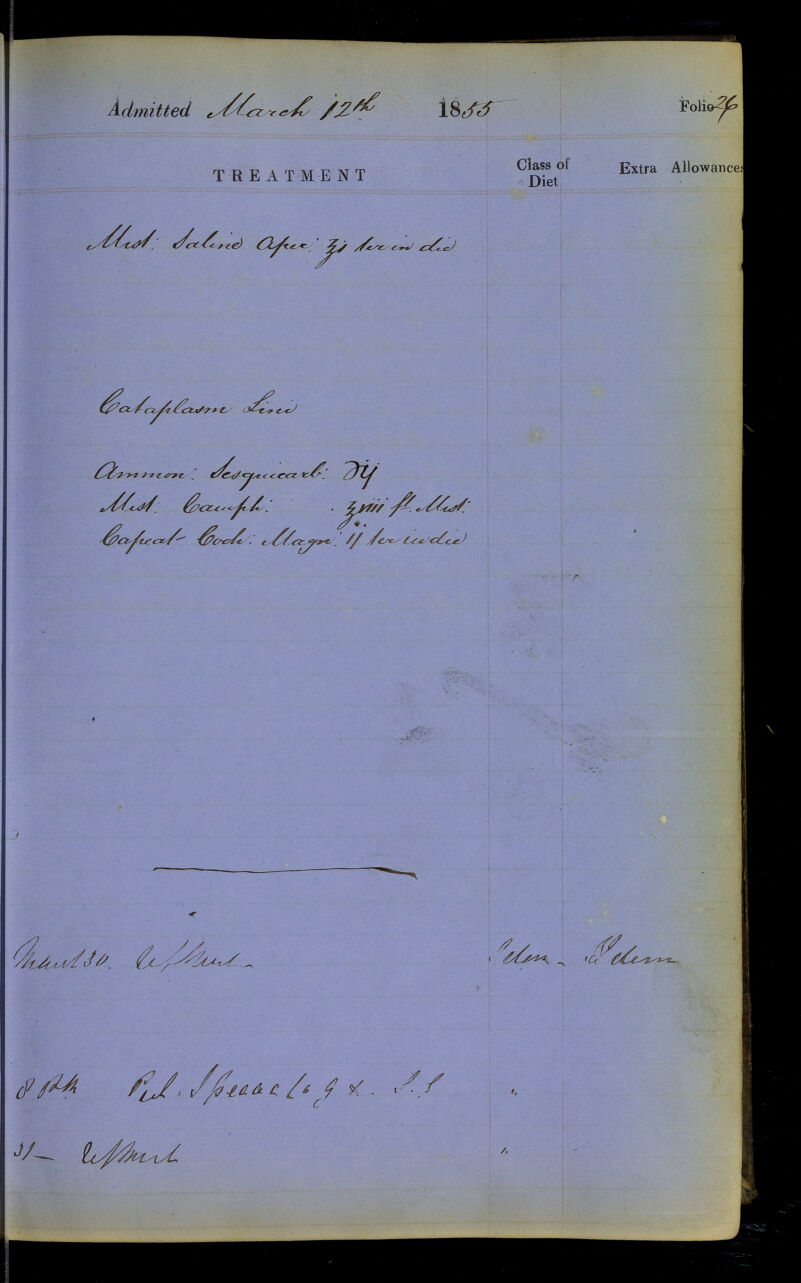 Admitted March 12th 1855 Folio 26
TREATMENT Class of Diet Extra Allowances
Mist: Saline Aper: ℥i ter in die
Cataplasm Lini
Ammon: Sesquicarb: ℈ij
Mist. Camph: ℥viii ft. Mist.
Capeat Coch: Magn: ij ter in die
March 30. Idem - Idem
8 P.M. Pul. Ipecac Co g x. "
31 - "